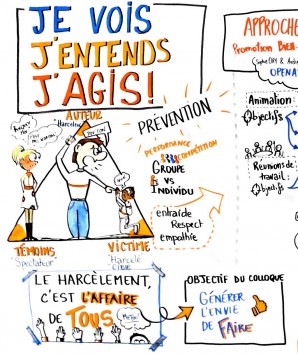 JE VOIS
J'ENTENDS
J'AGIS!
AUTEUR
"Harceleur
TÉMOINS
Spectateur
VICTIME
"Harcelé
CIBLE
PRÉVENTION
PERFORMANCE
COMPÉTITION
GROUPE
VS
INDIVIDU
entraide
Respect
empathie
LE HARCÈLEMENT,
C'EST L'AFFAIRE
DE TOUS
OBJECTIF DU COLLOQUE
GÉNÉRER
L'ENVIE
DE FAIRE
APPROCHE
Promotion Bien
OPENA
Animation:
Objectifs
Réunions de
travail:
Objectifs